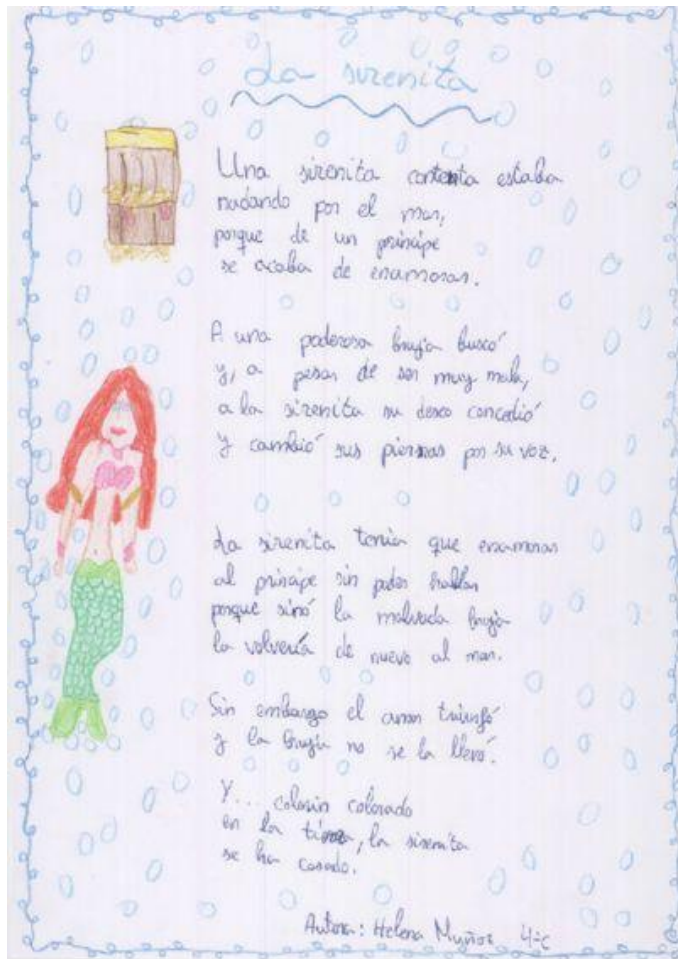 La sirenita
Una sirenita contenta estaba
nadando por el mar,
porque de un príncipe
se acaba de enamorar.
A una poderosa bruja buscó
y, a pesar de ser muy mala,
a la sirenita su deseo concedió
y cambió sus piernas por su voz.
La sirenita tenía que enamorar
al príncipe sin poder hablar
porque sinó la malvada bruja
la volvería de nuevo al mar.
Sin embargo el amor triunfó
y la bruja no se la llevó.
Y... colorín colorado
en la tierra, la sirenita
se ha casado.
Autora: Helena Muñoz 4ºC